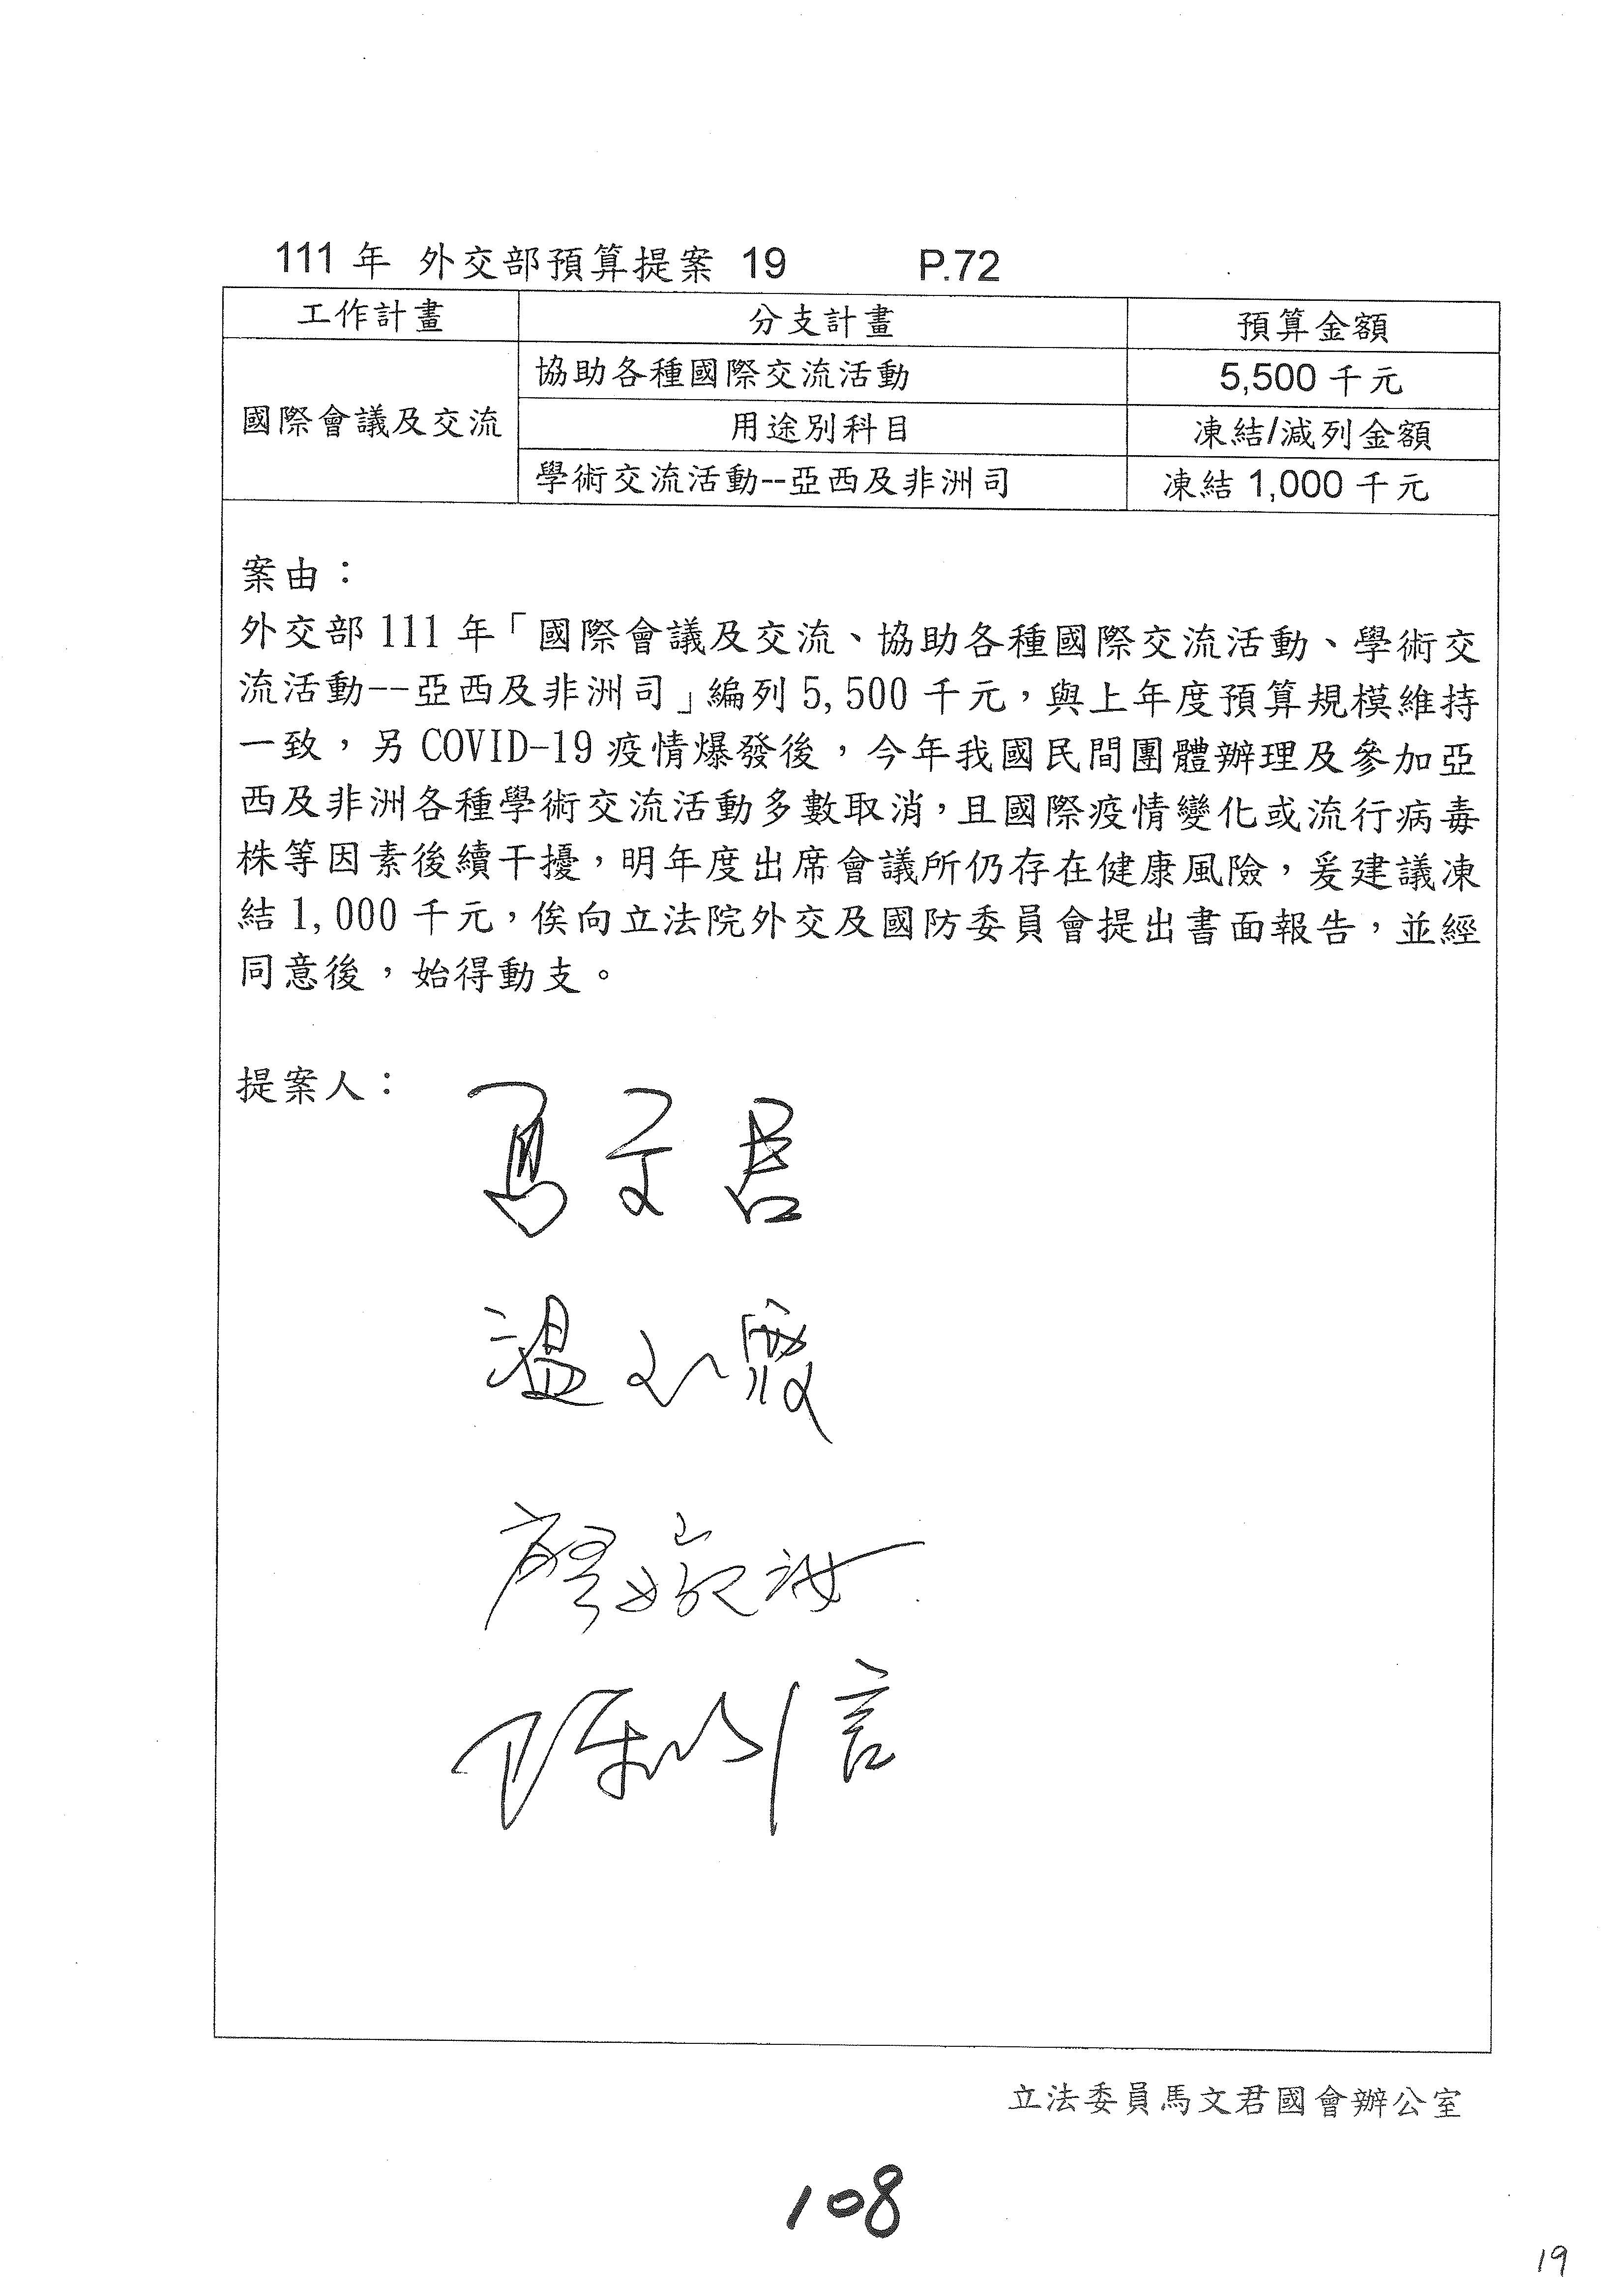 111 年 外交部預算提案 19 P.72
工作計畫 分支計畫 預算金額
國際會議及交流 協助各種國際交流活動 5,500 千元
用途別科目 凍結/減列金額
學術交流活動--亞西及非洲司 凍結 1,000 千元
案由：
外交部 111 年「國際會議及交流、協助各種國際交流活動、學術交
流活動--亞西及非洲司」編列 5,500 千元，與上年度預算規模維持
一致，另 COVID-19 疫情爆發後，今年我國民間團體辦理及參加亞
西及非洲各種學術交流活動多數取消，且國際疫情變化或流行病毒
株等因素後續干擾，明年度出席會議所仍存在健康風險，爰建議凍
結 1,000 千元，俟向立法院外交及國防委員會提出書面報告，並經
同意後，始得動支。
提案人：
馬文君
溫玉霞
廖婉汝
陳以信
立法委員馬文君國會辦公室
108
19